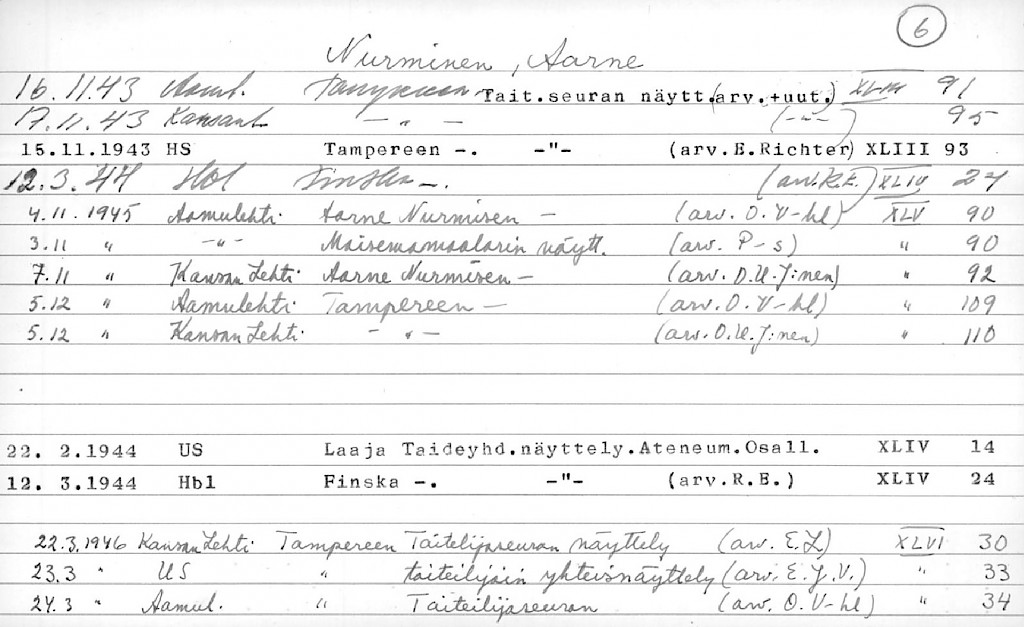 6
Nurminen, Aarne
16.11.43 Aamul. Tampereen Tait.seuran näytt.(arv.+uut.) XLIII 91
17.11.43 Kansanl. — " — (-"-) 95
15.11.1943 HS Tampereen -. -"- (arv.E.Richter) XLIII 93
12.3.44 Hbl Finska -. (arv.R.E.) XLIV 24
4.11.1945 Aamulehti Aarne Nurmisen — (arv. O.V-hl) XLV 90
3.11 " -"- Maisemamaalarin näytt. (arv. P-s) " 90
7.11 " Kansan Lehti Aarne Nurmisen — (arv. O.U.J:nen) " 92
5.12 " Aamulehti Tampereen — (arv. O.V-hl) " 109
5.12 " Kansan Lehti — " — (arv. O.U.J:nen) " 110
22. 2.1944 US Laaja Taideyhd.näyttely.Ateneum.Osall. XLIV 14
12. 3.1944 Hbl Finska -. -"- (arv.R.E.) XLIV 24
22.3.1946 Kansan Lehti Tampereen Taitelijaseuran näyttely (arv. E.L) XLVI 30
23.3 " US " taiteilijain yhteisnäyttely (arv. E.J.V.) " 33
24.3 " Aamul. " Taiteilijaseuran (arv. O.V-hl) " 34